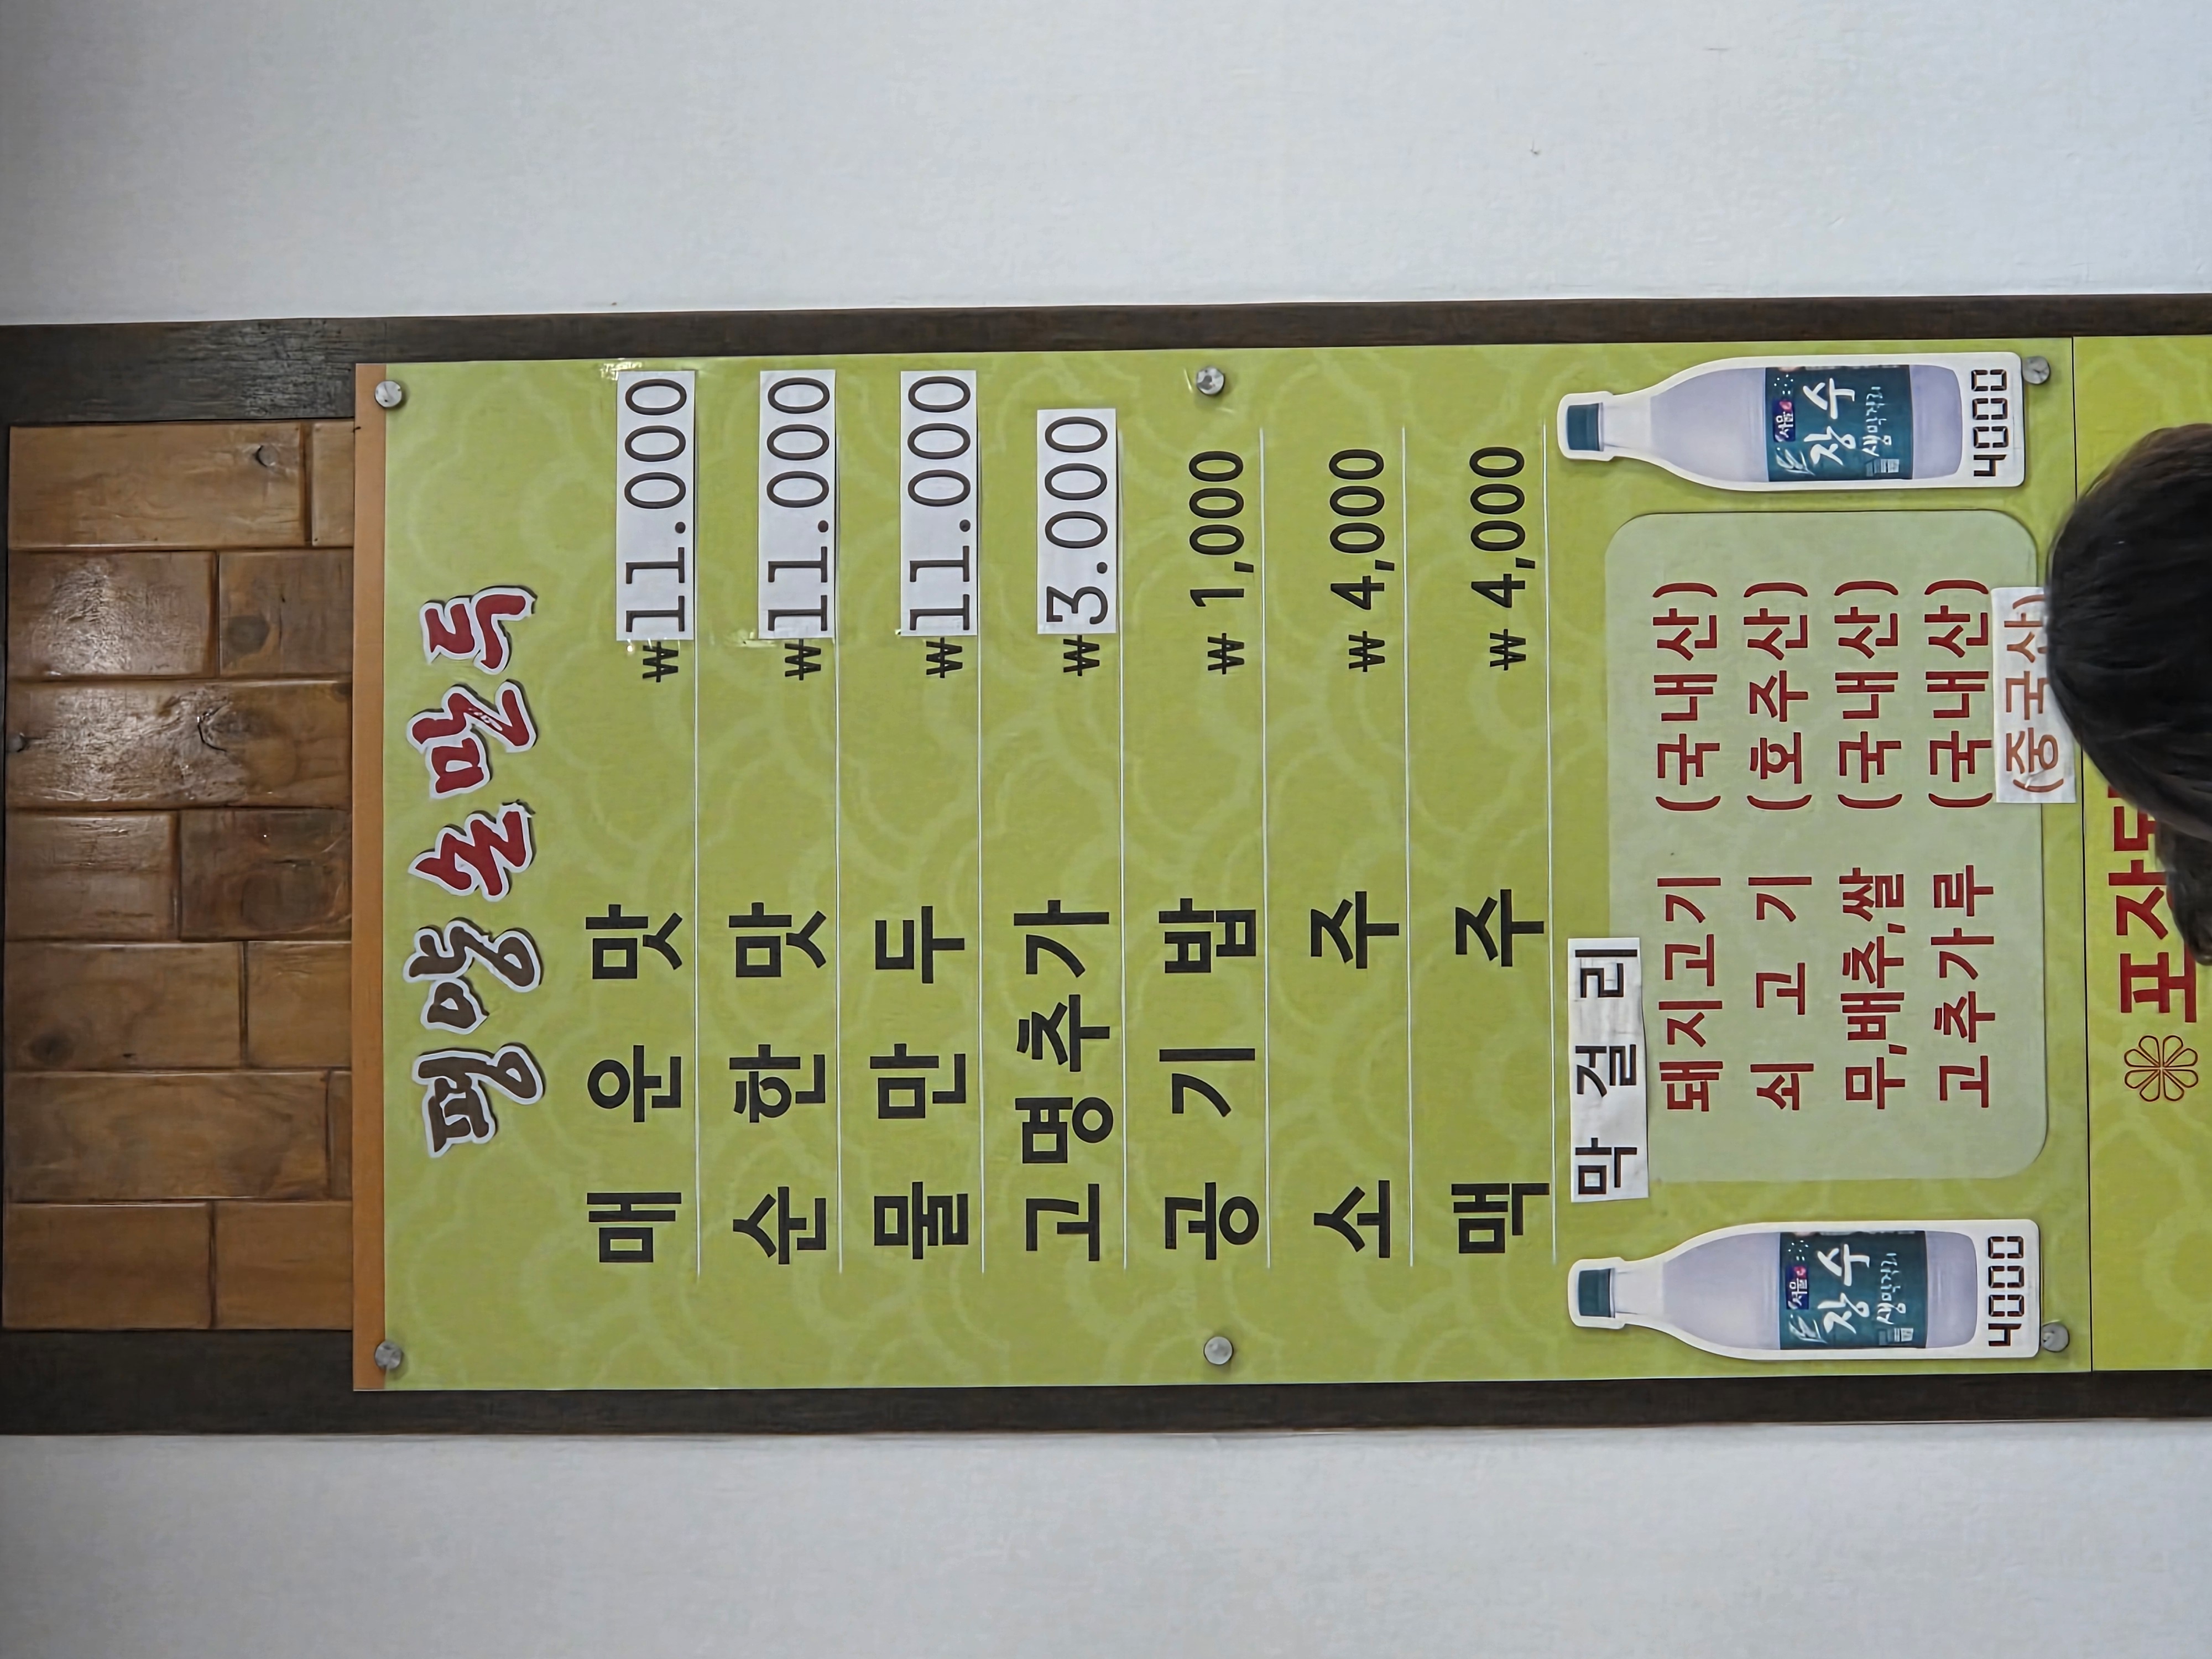 평양손만둑
매운맛 ₩11.000
순한맛 ₩11.000
물만두 ₩11.000
고명추가 ₩3.000
공기밥 ₩1,000
소주 ₩4,000
맥주 ₩4,000
막걸리
돼지고기 (국내산)
쇠고기 (호주산)
무,배추,쌀 (국내산)
고추가루 (국내산)
(중국산)
서울
장수
생막걸리
4000
서울
장수
생막걸리
4000
포장